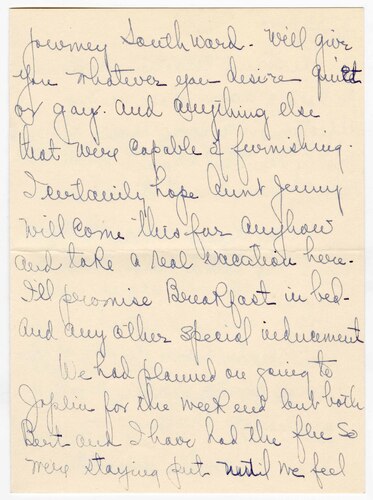 journey Southward. Will give
you whatever you desire quiet
or gay. And anything else
that were capable of furnishing.
I certainly hope Aunt Jenny
will come this far anyhow
and take a real vacation here.
I'll promise Breakfast in bed-
And any other special inducement
We had planned on going to
Joplin for the week end but both
Bert and I have had the flu so
were staying put until we feel